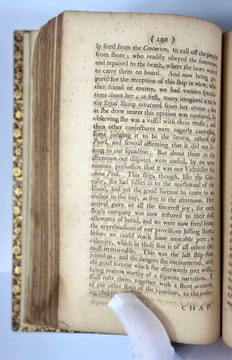 ( 192 )
ly fired from the Centurion, to call off the people
from shore; who readily obeyed the summons,
and repaired to the beach, where the boats waited
to carry them on board. And now being
pared for the reception of this ship in view, whe-
ther friend or enemy, we had various specula-
tions about her; at first, many imagined it to be
the Tryal Sloop returned from her cruize;
as she drew nearer this opinion was confuted, by
observing she was a vessel with three masts; and
then other conjectures were eagerly canvassed,
some judging it to be the Severn, others the
Pearl, and several affirming that it did not be-
long to our squadron: But about three in the
afternoon our disputes were ended, by an una-
nimous persuasion that it was our Victualler the
Anna Pink. This ship, though, like the Glo-
cester, she had fallen in to the northward of the
Island, had yet the good fortune to come to an
anchor in the bay, at five in the afternoon. Her
arrival gave us all the sincerest joy; for each
ship's company was now restored to their full
allowance of bread, and we were now freed from
the apprehensions of our provisions falling short,
before we could reach some amicable port; a
calamity, which in these seas is of all others the
most irremediable. This was the last ship that
joined us; and the dangers she encountered, and
the good fortune which she afterwards met with,
being matters worthy of a separate narration, I
shall refer them, together with a short account
of the other ships of the squadron, to the
ing
CHAP